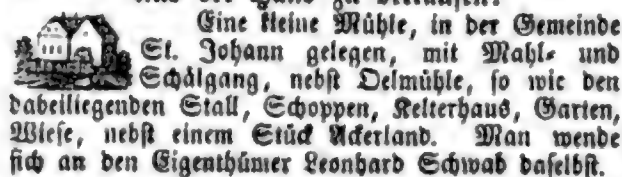 Eine kleine Mühle, in der Gemeinde
St. Johann gelegen, mit Mahl- und
Schälgang, nebst Oelmühle, so wie den
dabeiliegenden Stall, Schoppen, Kelterhaus, Garten,
Wiese, nebst einem Stück Ackerland. Man wende
sich an den Eigenthümer Leonhard Schwab daselbst.